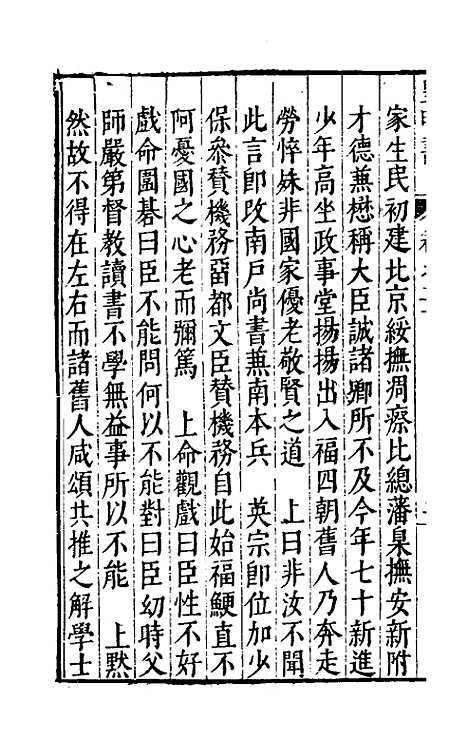 家生民初建北京綏撫凋瘵比總藩臬撫安新附
才德兼懋稱大臣誠諸卿所不及今年七十新進
少年高坐政事堂揚揚出入福四朝舊人乃奔走
勞悴姝非國家優老敬賢之道　上曰非汝不聞
此言卽改南戶尚書兼南本兵　英宗卽位加少
保叅贊機務畱都文臣贊機務自此始福鯁直不
阿憂國之心老而彌篤　上命觀戲曰臣性不好
戲命圍碁曰臣不能問何以不能對曰臣幼時父
師嚴第督教讀書不學無益事所以不能　上黙
然故不得在左右而諸舊人咸頌共推之解學士